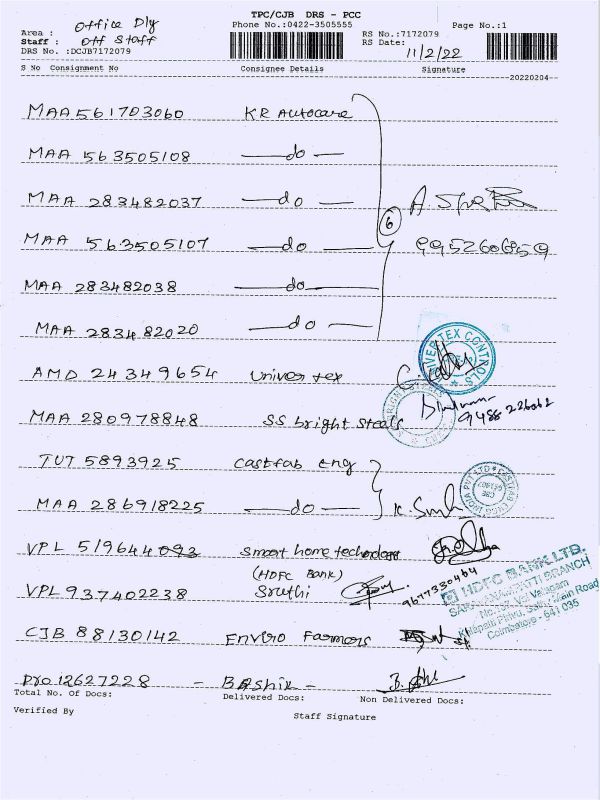 TPC/CJB DRS - PCC
Area : Office Dly
Phone No.:0422-3505555
RS No.:7172079
Page No.:1
Staff : Off Staff
RS Date: 11/2/22
DRS No. :DCJB7172079
S No Consignment No Consignee Details Signature
20220204
MAA 561703060 KR Autocare
MAA 563505108 do
MAA 283482037 do
6
MAA 563505107 do 9952606959
MAA 283482038 do
MAA 283482020 do
AMD 24349654 Univer tex
UNIVER TEX CONTROLS
MAA 280978848 SS bright steels
9488226062
TUT 5893925 Castfab eng
MAA 286918225 do
VPL 519644093 Smart home
(HDFC Bank)
9677330464
VPL 937402238 Sruthi
HDFC BANK LTD.
SARAVANAMPATTI BRANCH
Main Road
Coimbatore - 641 035
CJB 88130142 Enviro Farmers
Pro 12627228 - Bashik -
Total No. Of Docs: Delivered Docs: Non Delivered Docs:
Verified By
Staff Signature